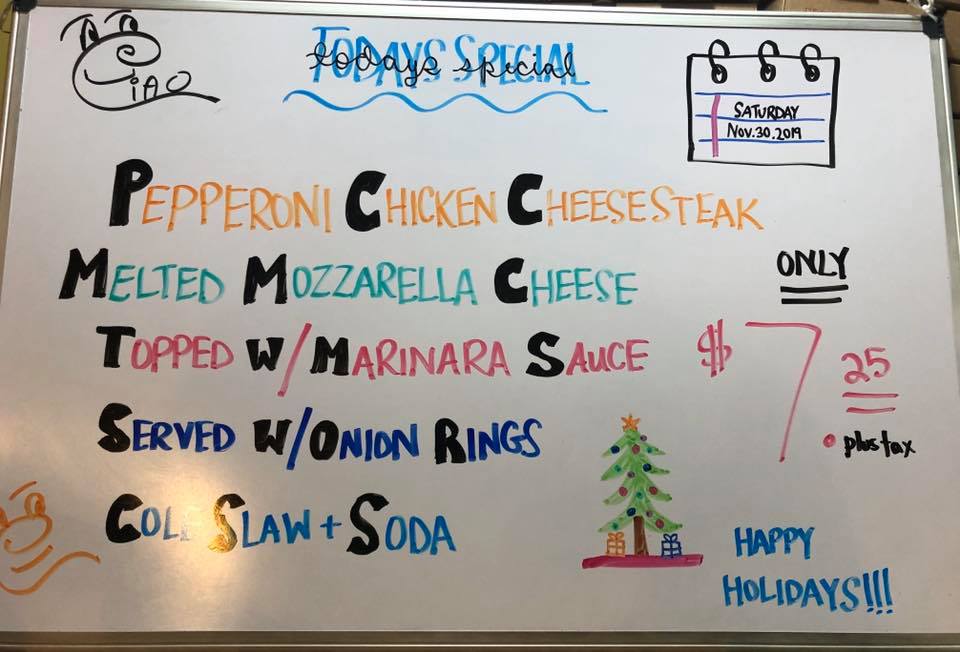 Ciao
TODAYS SPECIAL
todays special
SATURDAY
NOV.30.2019
PEPPERONI CHICKEN CHEESESTEAK
MELTED MOZZARELLA CHEESE
TOPPED W/MARINARA SAUCE
SERVED W/ONION RINGS
COLE SLAW + SODA
ONLY
$7 25
plus tax
HAPPY
HOLIDAYS!!!